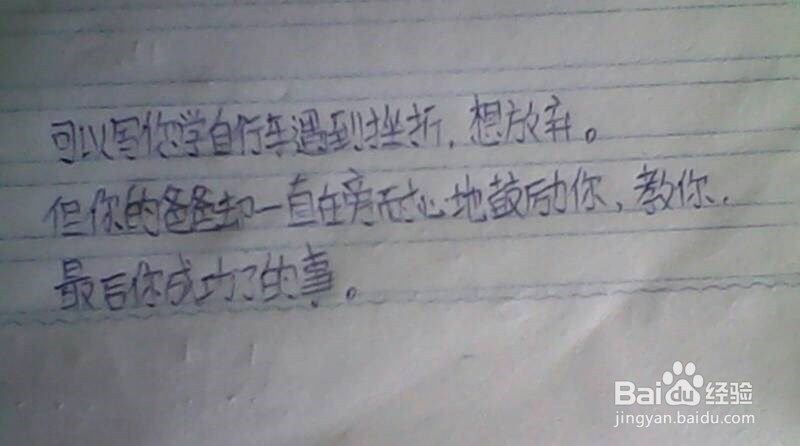 可以写你学自行车遇到挫折，想放弃。
但你的爸爸却一直在旁耐心地鼓励你、教你，
最后你成功了的事。
Baidu经验
jingyan.baidu.com